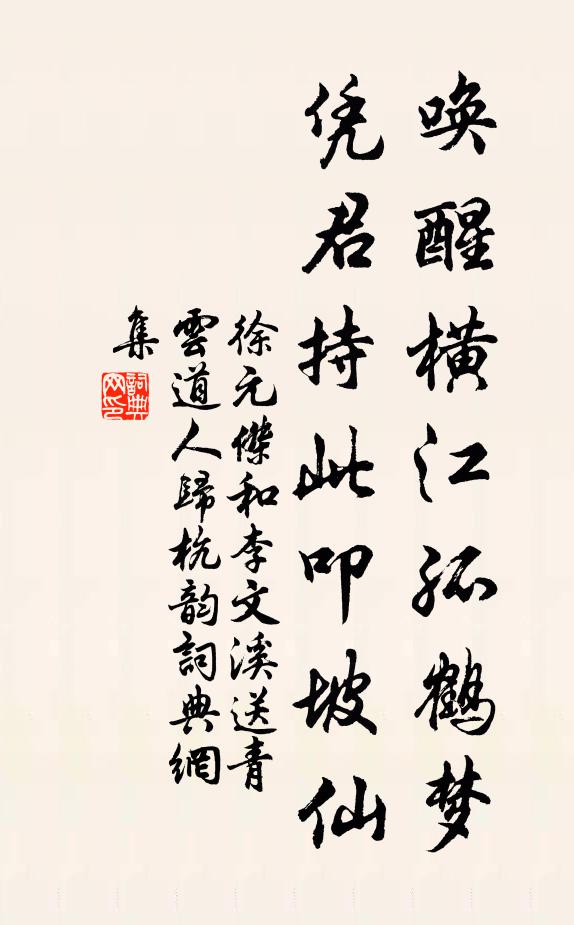 唤醒横江孤鹤梦
凭君持此叩坡仙
徐元傑和李文溪送青
雲道人歸杭韵詞典網
集
詞典
网印